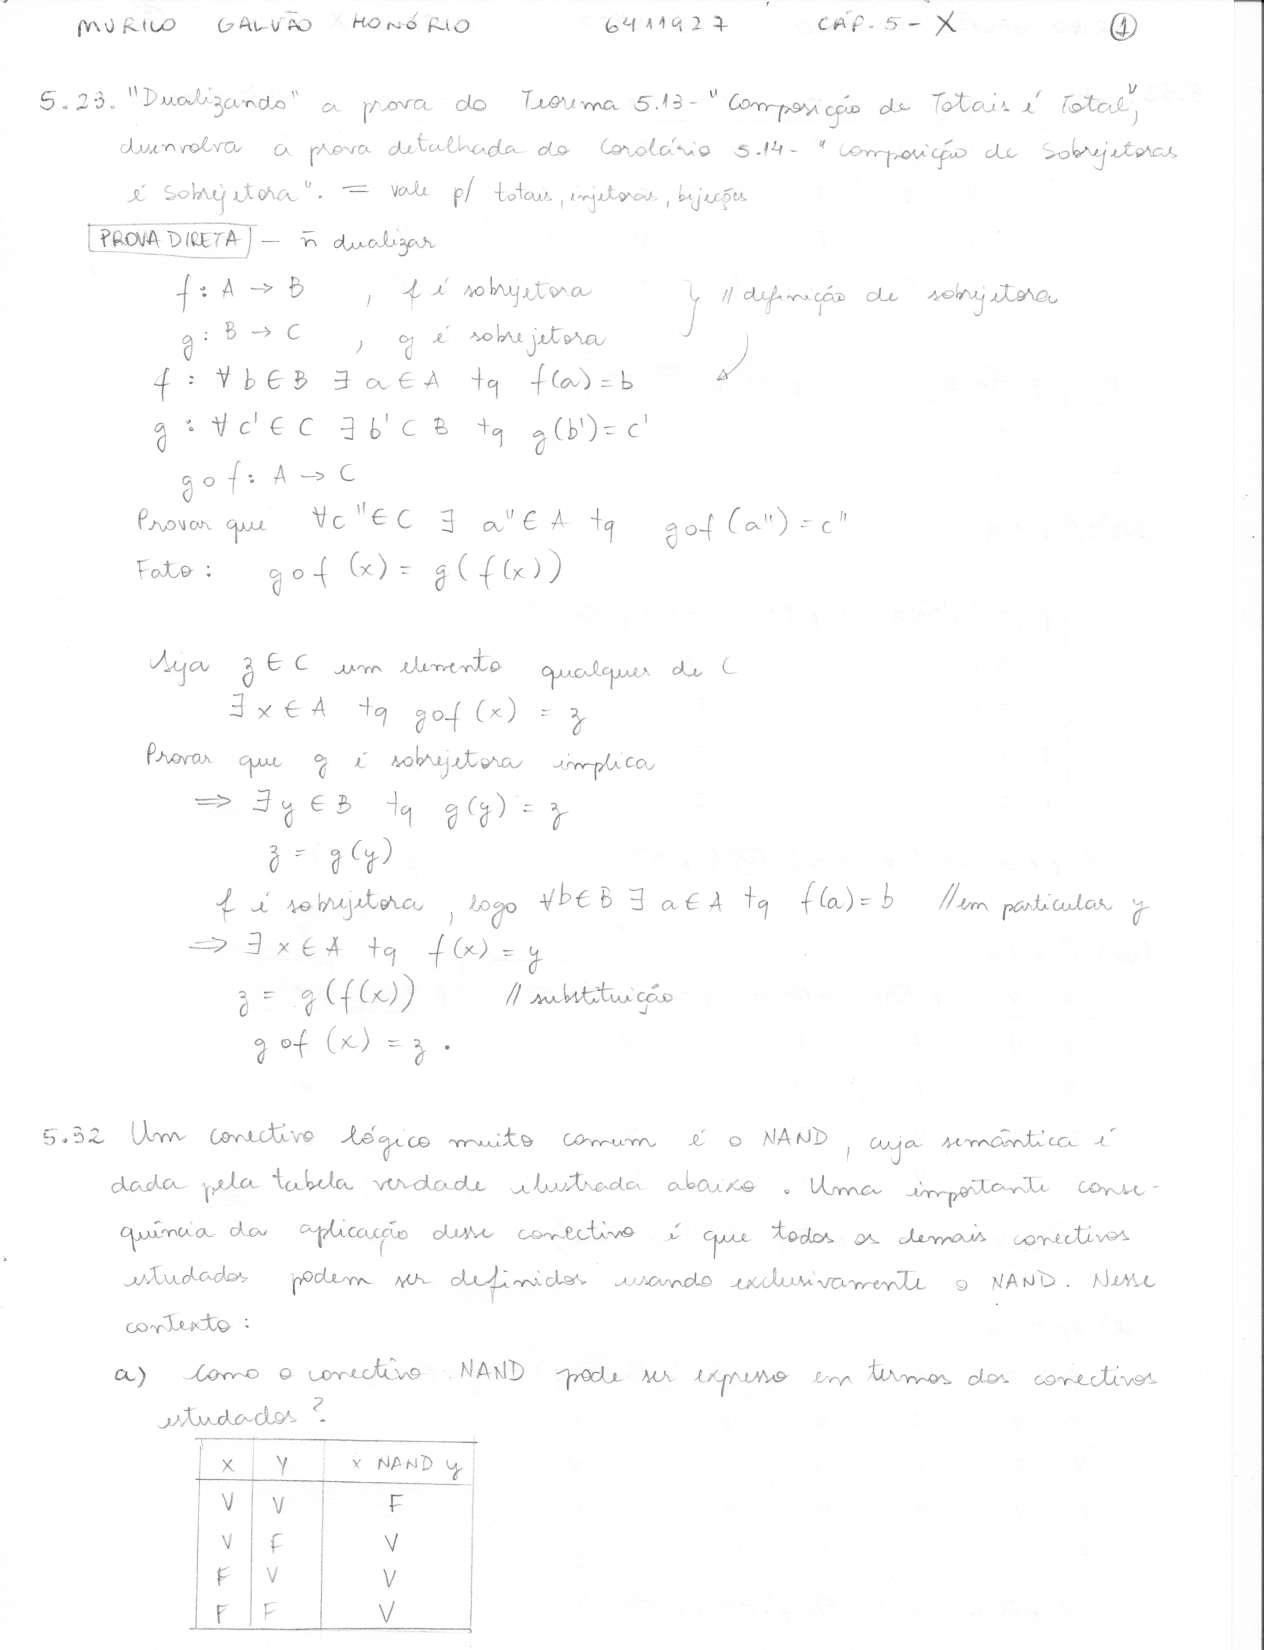 MURILO GALVÃO HONÓRIO 6411927 CAP. 5 - X 1
5.23. "Dualizando" a prova do Teorema 5.13 - "Composição de Totais é Total",
desenvolva a prova detalhada do Corolário 5.14 - "Composição de Sobrejetoras
é Sobrejetora". = vale p/ totais, injetoras, bijeções
PROVA DIRETA - ñ dualizar
f: A → B , f é sobrejetora } // definição de sobrejetora
g: B → C , g é sobrejetora
f : ∀ b ∈ B ∃ a ∈ A tq f(a) = b
g : ∀ c' ∈ C ∃ b' ⊂ B tq g(b') = c'
g o f: A → C
Provar que ∀c'' ∈ C ∃ a'' ∈ A tq gof(a'') = c''
Fato: gof (x) = g(f(x))
Seja z ∈ C um elemento qualquer de C
∃ x ∈ A tq gof(x) = z
Provar que g é sobrejetora implica
⇒ ∃ y ∈ B tq g(y) = z
z = g(y)
f é sobrejetora, logo ∀b ∈ B ∃ a ∈ A tq f(a) = b // em particular y
⇒ ∃ x ∈ A tq f(x) = y
z = g(f(x)) // substituição
gof (x) = z .
5.32 Um conectivo lógico muito comum é o NAND, cuja semântica é
dada pela tabela verdade ilustrada abaixo. Uma importante conse-
quência da aplicação desse conectivo é que todos os demais conectivos
estudados podem ser definidos usando exclusivamente o NAND. Nesse
contexto:
a) Como o conectivo NAND pode ser expresso em termos dos conectivos
estudados?
X Y x NAND y
V V F
V F V
F V V
F F V